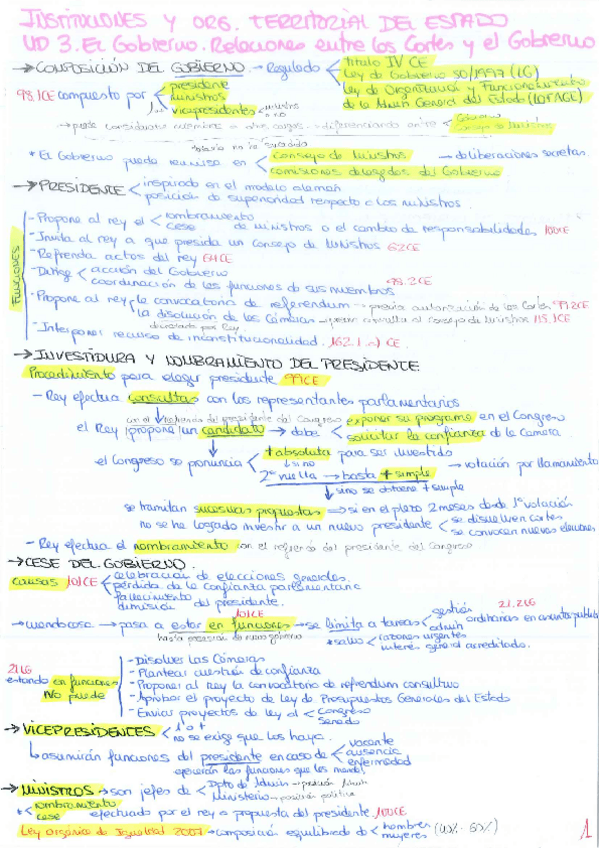 INSTITUCIONES Y ORG. TERRITORIAL DEL ESTADO
UD 3. El Gobierno. Relaciones entre las Cortes y el Gobierno
→ COMPOSICIÓN DEL GOBIERNO → Regulado < Título IV CE
Ley de Gobierno 50/1997 (LG)
Ley de Organización y Funcionamiento de la Admón General del Estado (LOFAGE)
98.1CE compuesto por < presidente
ministros
vicepresidentes < ministro
o no
→ puede considerarse miembro a otros cargos → diferenciando entre < Gobierno
Consejo de Ministros
todavía no ha sucedido
* El Gobierno puede reunirse en < consejo de ministros → deliberaciones secretas.
comisiones delegadas del Gobierno
→ PRESIDENTE < inspirado en el modelo alemán
posición de superioridad respecto a los ministros.
FUNCIONES
- Propone al rey el < nombramiento
cese de ministros o el cambio de responsabilidades 100CE
- Invita al rey a que presida un Consejo de Ministros 62CE
- Refrenda actos del rey 64CE
- Dirige < acción del Gobierno
coordinación de las funciones de sus miembros 98.2CE
- Propone al rey < la convocatoria de referendum → previa autorización de las Cortes 92.2CE
la disolución de las Cámaras → previa consulta al consejo de ministros 115.1CE
decretado por Rey
- Interponer recurso de inconstitucionalidad. 162.1.a) CE.
→ INVESTIDURA Y NOMBRAMIENTO DEL PRESIDENTE
Procedimiento para elegir presidente 99CE
- Rey efectúa consultas con los representantes parlamentarios
con el refrendo del presidente del Congreso
el Rey propone un candidato → debe < exponer su programa en el Congreso
solicitar la confianza de la Cámara
el Congreso se pronuncia < + absoluta para ser investido
si no
2ª vuelta → basta + simple → votación por llamamiento
si no se obtiene + simple
se tramitan sucesivas propuestas ⇒ si en el plazo 2 meses desde 1ª votación
no se ha logrado investir a un nuevo presidente < se disuelven cortes
se convocan nuevas elecciones
- Rey efectua el nombramiento con el refrendo del presidente del Congreso
→ CESE DEL GOBIERNO.
causas 101CE < celebración de elecciones generales.
pérdida de la confianza parlamentaria
fallecimiento
dimisión del presidente.
101CE
→ cuando cesa → pasa a estar en funciones → se limita a tareas < gestión
admin ordinarias en asuntos públicos 21.3LG
hasta posesión de nuevo gobierno
* salvo < razones urgentes
interés general acreditado.
21LG
estando en funciones
No puede
- Disolver las Cámaras
- Plantear cuestión de confianza
- Proponer al Rey la convocatoria de referendum consultivo
- Aprobar el proyecto de Ley de Presupuestos Generales del Estado
- Enviar proyectos de ley al < Congreso
Senado
→ VICEPRESIDENTES < 1 o +
no se exige que los haya.
↳ asumirán funciones del presidente en caso de < vacante
ausencia
enfermedad
ejercerán las funciones que les mande
→ MINISTROS → son jefes de < Dpto de Admón → posición Admón
Ministerio → posición política
* < nombramiento
cese efectuado por el rey a propuesta del presidente. 100CE
Ley Orgánica de Igualdad 2007 → composición equilibrada de < hombres
mujeres (40% - 60%)
1